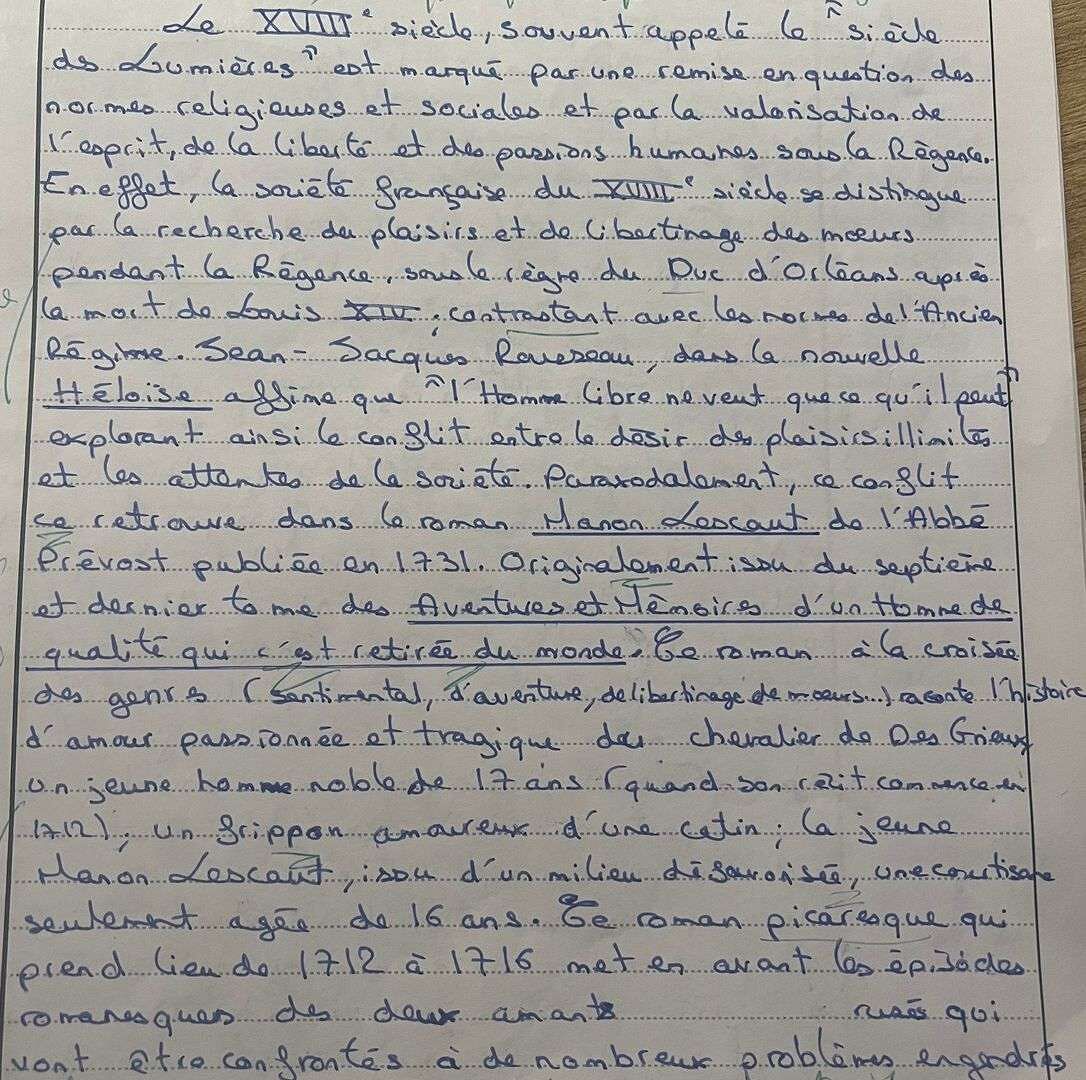 Le XVIIIe siècle, souvent appelé le "siècle
des Lumières" est marqué par une remise en question des
normes religieuses et sociales et par la valorisation de
l'esprit, de la liberté et des passions humaines sous la Régence.
En effet, la société française du XVIIIe siècle se distingue
par la recherche du plaisirs et de libertinage des mœurs
pendant la Régence, sous le règne du Duc d'Orléans après
la mort de Louis XIV, contrastant avec les normes de l'Ancien
Régime. Jean-Jacques Rousseau, dans la nouvelle
Héloïse affime que "l'Homme libre ne veut que ce qu'il peut"
explorant ainsi le conflit entre le désir des plaisirs illimités
et les attentes de la société. Paraxodalement, ce conflit
ce retrouve dans le roman Manon Lescaut de l'Abbé
Prévost publiée en 1731. Originalement issu du septième
et dernier tome des Aventures et Mémoires d'un Homme de
qualité qui c'est retirée du monde. Ce roman à la croisée
des genres (sentimental, d'aventure, de libertinage de mœurs...) raconte l'histoire
d'amour passionnée et tragique du chevalier de Des Grieux
un jeune homme noble de 17 ans (quand son récit commence en
1712), un frippon amoureux d'une catin; la jeune
Manon Lescaut, issu d'un milieu défavorisée, une courtisane
seulement agée de 16 ans. Ce roman picaresque qui
prend lieu de 1712 à 1716 met en avant les épisodes
romanesques des deux amants rusés qui
vont être confrontés à de nombreux problèmes engendrés